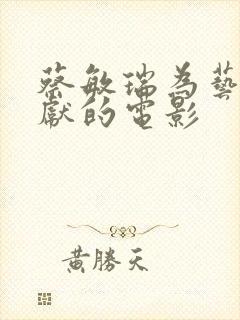 蔡敏瑞為藝
獻的電影
黃勝天